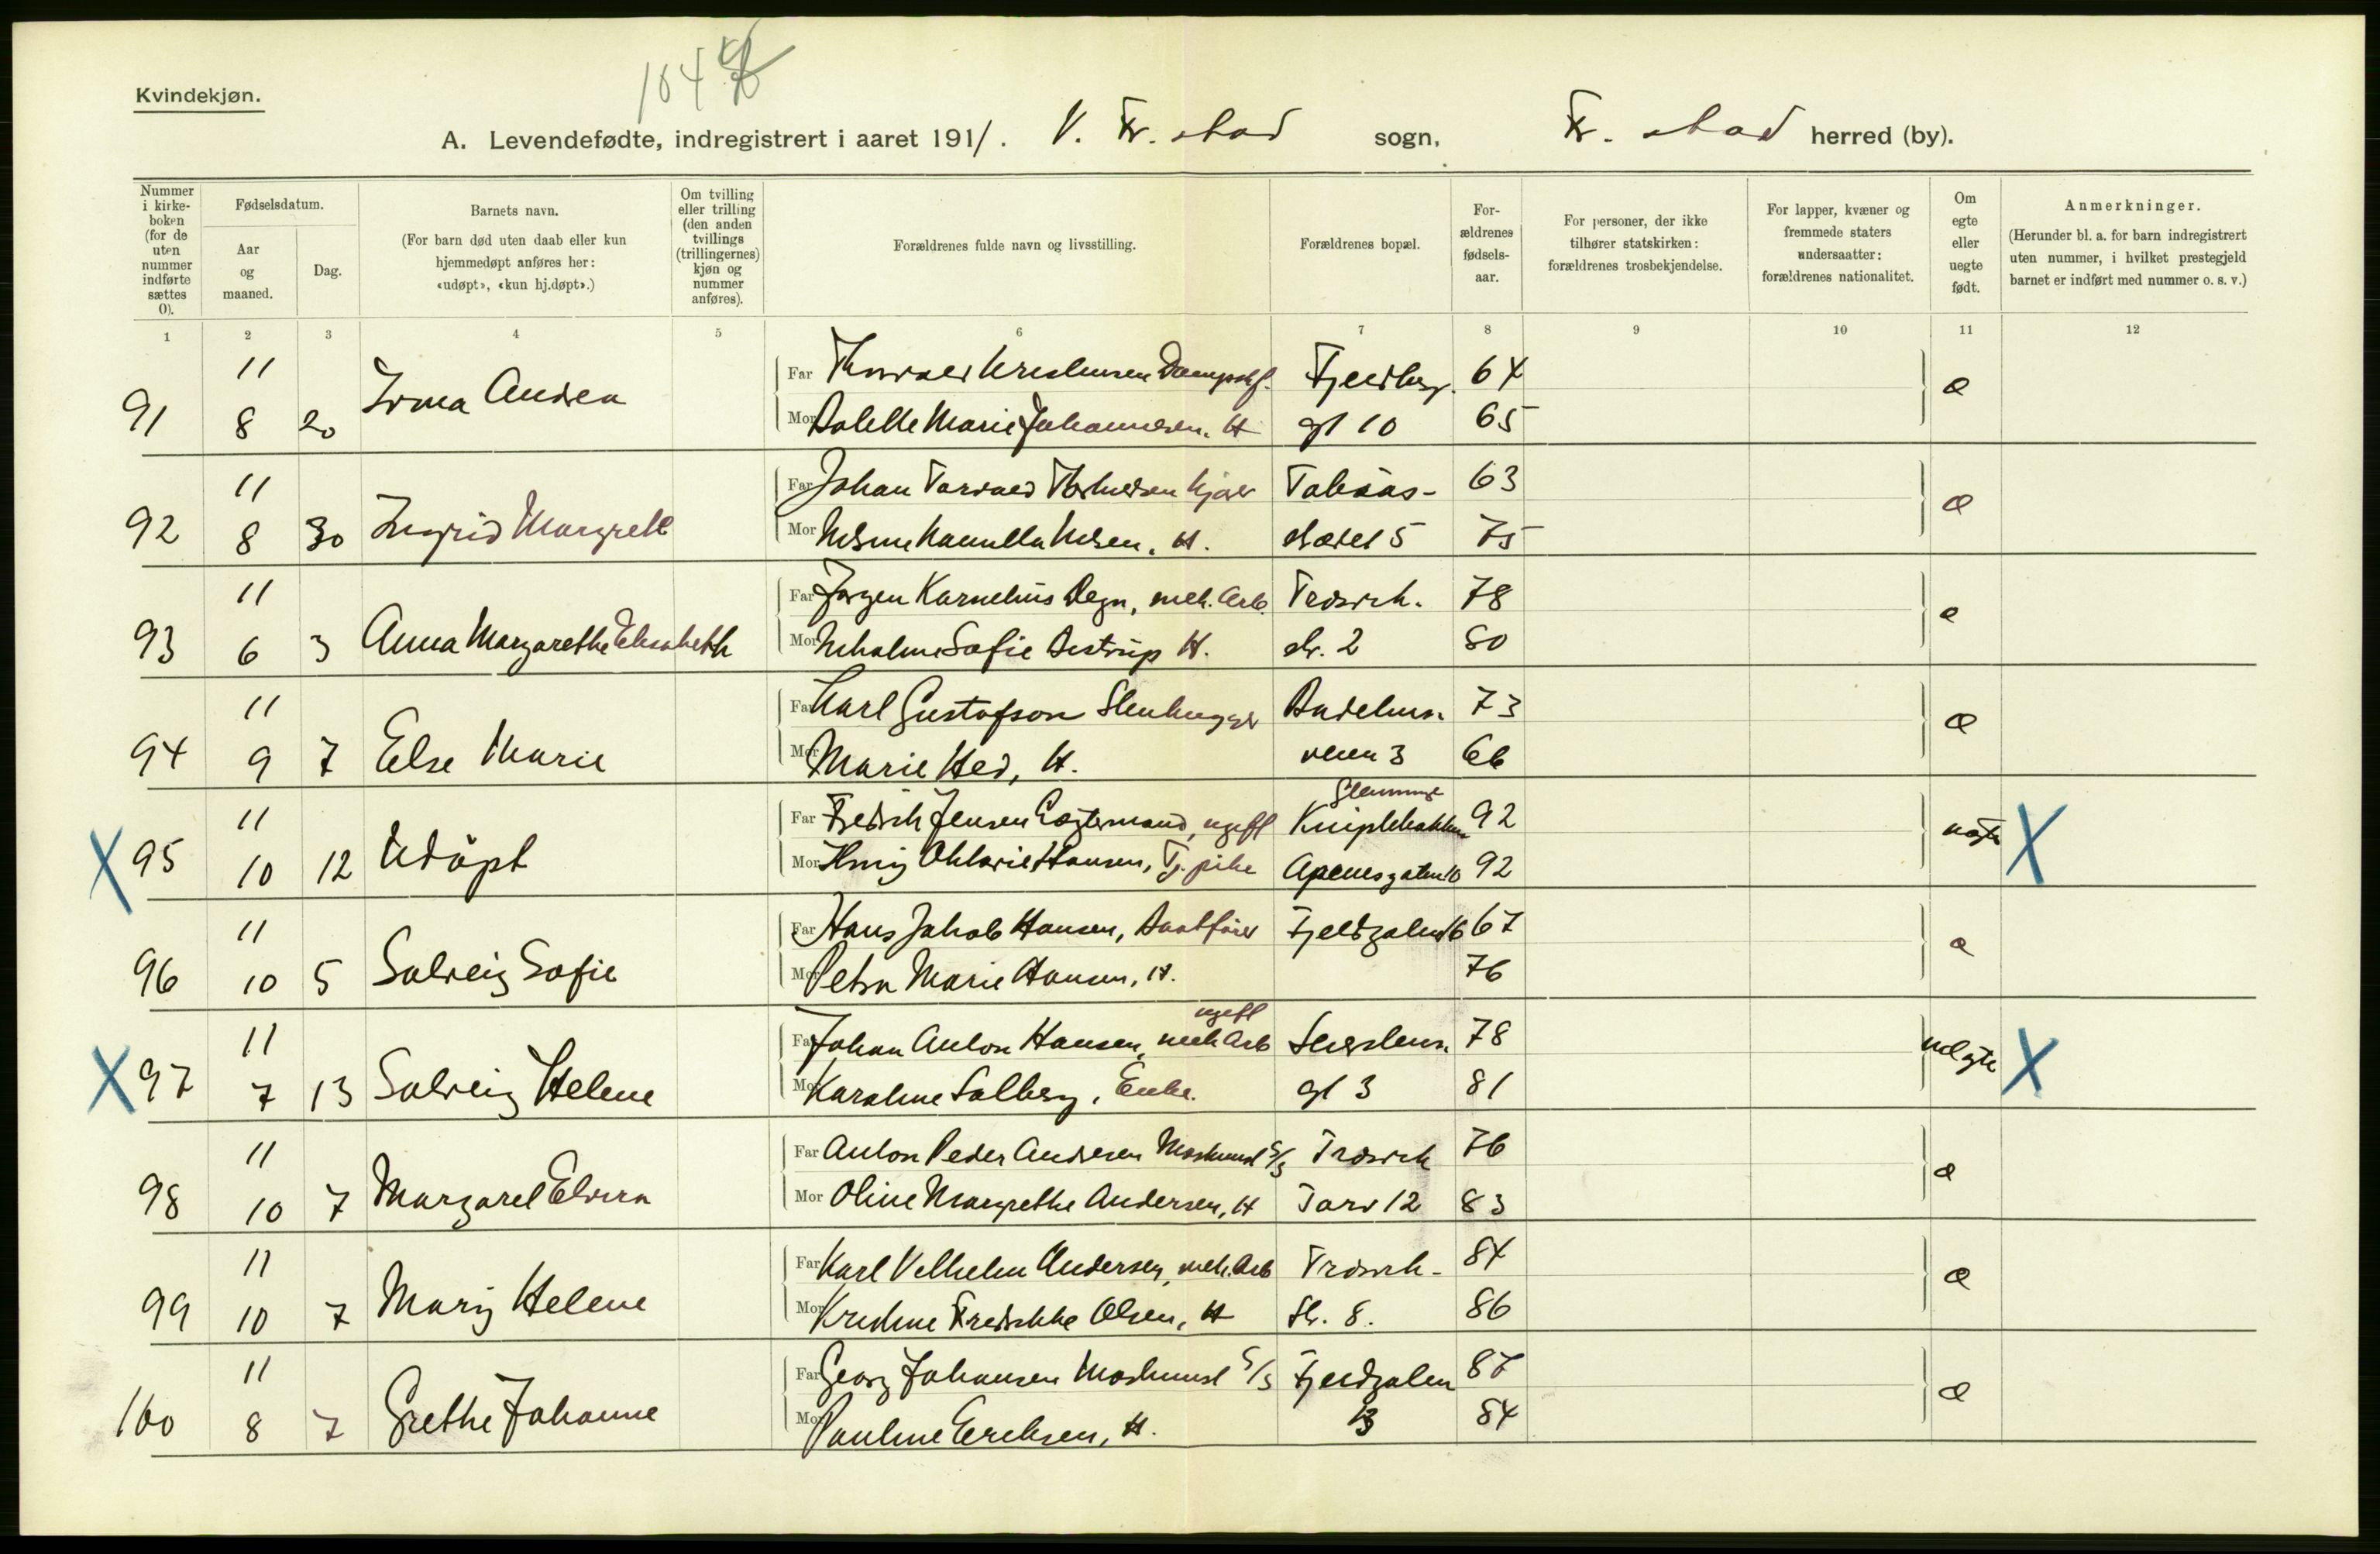 Kvindekjøn.
104
A. Levendefødte, indregistrert i aaret 1911. V. Fr. stad sogn, Fr. stad herred (by).
Nummer i kirke- boken (for de uten nummer indførte sættes 0).
Fødselsdatum.
Aar og maaned.
Dag.
Barnets navn.
(For barn død uten daab eller kun hjemmedøpt anføres her: «udøpt», «kun hj.døpt».)
Om tvilling eller trilling (den anden tvillings (trillingernes) kjøn og nummer anføres).
Forældrenes fulde navn og livsstilling.
Forældrenes bopæl.
For- ældrenes fødsels- aar.
For personer, der ikke tilhører statskirken: forældrenes trosbekjendelse.
For lapper, kvæner og fremmede staters undersaatter: forældrenes nationalitet.
Om egte eller uegte født.
Anmerkninger.
(Herunder bl. a. for barn indregistrert uten nummer, i hvilket prestegjeld barnet er indført med nummer o. s. v.)
1 2 3 4 5 6 7 8 9 10 11 12
11 Far 64
91 8 20 Irma Andrea Mor Marie Johannesen. H gt 10 65
11 Far Johan 63
92 8 30 Ingrid Margrete Mor H. 5 75
11 Far Jørgen Kornelius Degn, mek. Arb. Trosvik. 78
93 6 3 Anna Margarethe Elisabeth Mor Sofie Aestrup H. str. 2 80
11 Far Karl Gustafson Stenhugger 73
94 9 7 Else Marie Mor Marie Hed, H. veien 3 66
11 Far Fredrik Jensen ugift 92
X 95 10 12 Udöpt Mor Hansen, Tj. pike Apenesgaten 10 92 X
11 Far Hans Jakob Hansen, Baatfører Fjeldgaten 16 67
96 10 5 Solveig Sofie Mor Petra Marie Hansen, H. 76
11 Far Johan Anton Hansen, mek Arb ugift 78
X 97 7 13 Solveig Helene Mor Karoline Solberg, Enke. gt 3 81 uegte X
11 Far Anton Peder Andresen Maskinist S/S Trosvik 76
98 10 7 Margaret Elvira Mor Oline Margrethe Andersen, H Torv 12 83
11 Far Karl Vilhelm Andersen, mek. Arb Trosvik- 84
99 10 7 Mary Helene Mor Kristine Fredrikke Olsen, H St. 8. 86
11 Far Georg Johansen Maskinist S/S Fjeldgaten 87
100 8 7 Grethe Johanne Mor Pauline Eriksen, H. 13 84